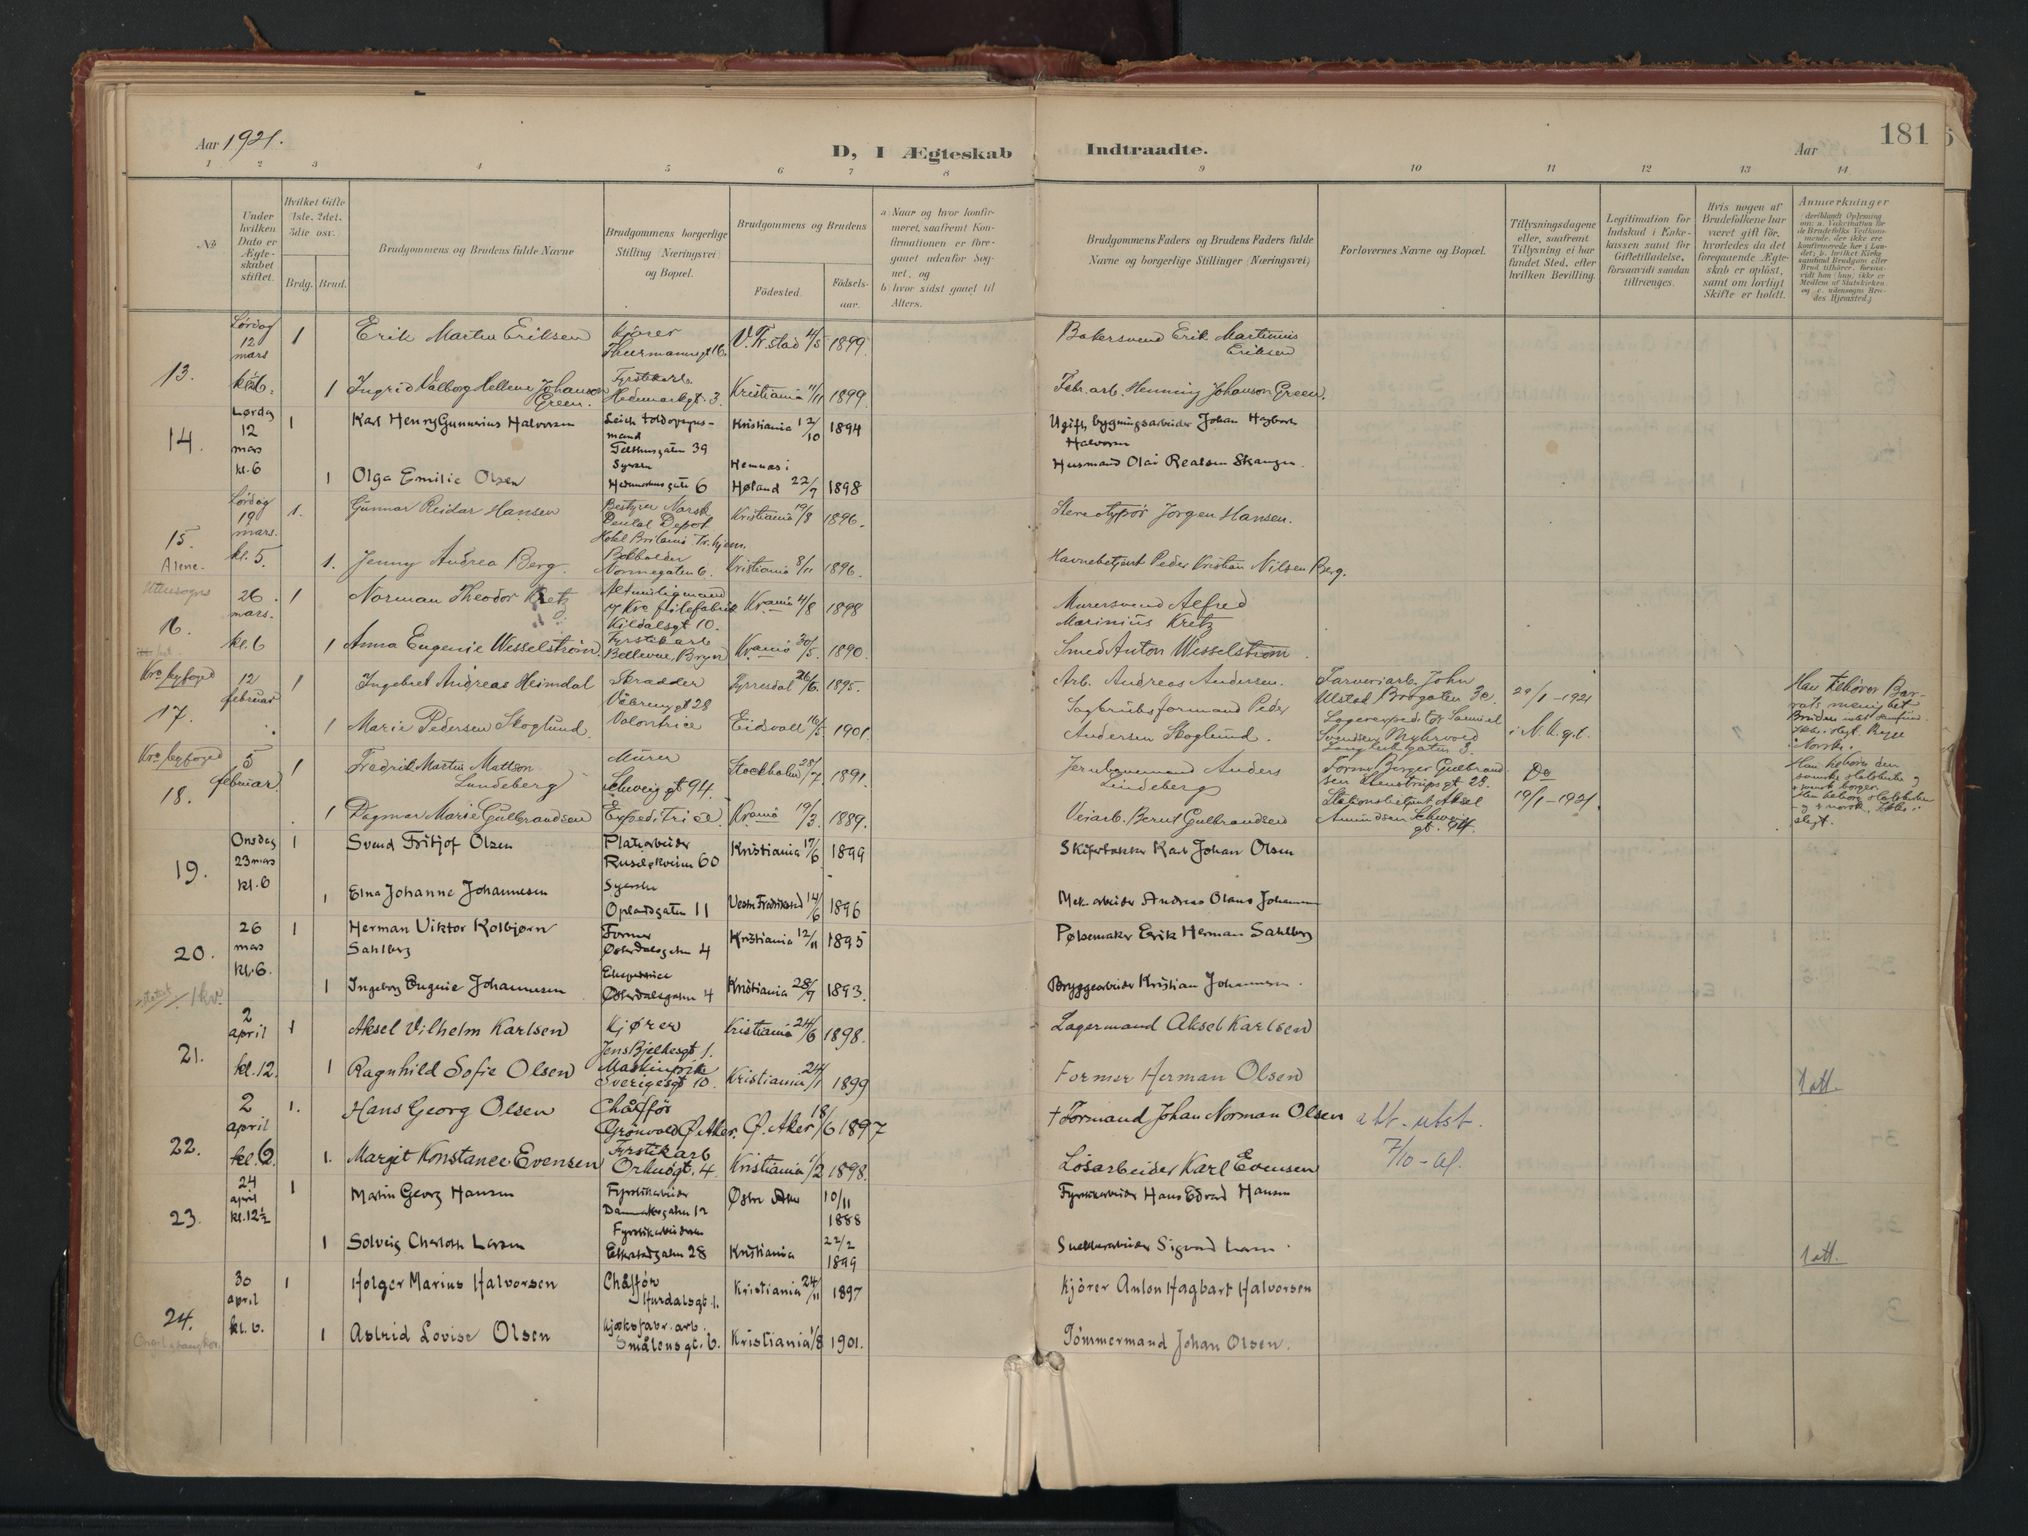 Aar 1921.
D, I Ægteskab Indtraadte.
Aar
181
1 2 3 4 5 6 7 8 9 10 11 12 13 14
No.
Under hvilken Dato er Ægteskabet stiftet.
Hvilket Gifte (1ste, 2det, 3die osv.
Brdg. Brud.
Brudgommens og Brudens fulde Navne
Brudgommens borgerlige Stilling (Næringsvei) og Bopæl.
Brudgommens og Brudens
Fødested. Fødselsaar.
a Naar og hvor konfirmeret, saafremt Konfirmationen er foregaaet udenfor Sognet, og
b hvor sidst gaaet til Alters.
Brudgommens Faders og Brudens Faders fulde Navne og borgerlige Stillinger (Næringsvei)
Forlovernes Navne og Bopæl.
Tillysningsdagene eller, saafremt Tillysning ei har fundet Sted, efter hvilken Bevilling.
Legitimation for Indskud i Enkekassen samt for Giftetilladelse, forsaavidt saadan tiltrænges.
Hvis nogen af Brudefolkene har været gift før, hvorledes da det foregaaende Ægteskab er opløst, samt om lovligt Skifte er holdt.
Anmærkninger
13. Lørdag 12 mars kl. 6
1 Erik Martin Eriksen Kjører Thurmannsgt 16. V. Fr.stad 4/5 1899. Bakersvend Erik Martinius Eriksen
1 Ingrid Valborg Hellene Johanson Green. Fyrstikarb. Hedemarkgt. 3. Kristiania 11/11 1899. Fabr. arb. Henning Johanson Green.
14. Lørdag 12 mars kl. 6
1 Karl Henry Gunnerius Halvorsen Tefthusgaten 39 Kristiania 12/10 1894 Ugift bygningsarbeider Johan Hagbart Halvorsen
1 Olga Emilie Olsen Syerske Hedemarksgata 6 Hemnæs i Høland 22/7 1898 Husmand Olai
15. Lørdag 19 mars. kl. 5
Alene.
1. Gunnar Reidar Hansen Bestyrer Norsk Dental Depot Kristiania 19/8 1896. Stereotypør Jørgen Hansen.
1. Jenny Andrea Berg. Bokholder Normegaten 6. Kristiania 8/11 1896. Havnebetjent Peder Kristian Nilsen Berg.
Utensogns
16. 26 mars. kl. 6
1 Norman Theodor Kretz Altmuligmand v/ Kra filefabrik Kildalsgt 10. Kr.ania 4/8 1898 Murersvend Alfred Marinius Kretz
1 Anna Eugenie Wesselstrøm. Fyrstikarb. Bellevue, Bryn Kr.ania 30/5. 1890. Smed Anton Wesselstrøm.
Kra byfoged
17. 12 februar
1 Ingebret Andreas Heimdal Skradder Vibesgt 28 Fyrresdal 26/6. 1895. Arb. Andreas Andersen. Farveriarb. John Ulstad Brogaten 3c. 29/1-1921
1 Marie Pedersen Skoglund. Valontrice Eidsvoll 10/5 1901. Sagbruksformand Peder Andersen Skoglund. Lagerexpeditør Samuel Svendsen Myhrvold Langlikgaten 3. i N.K.q.l.
Kra byfoged
18. 5 februar.
1 Fredrik Martin Mattson Lundeberg Murer Schweigsgt 94. Stockholm 28/7 1891. Jernbanemand Anders Lindeberg Former Birger Gulbrandsen Kjenstrupsgt 28. Do
1 Dagmar Marie Gulbrandsen Expeditrice Kr.ania 19/3. 1889. Veiarb. Bernt Gulbrandsen Stationsbetjent Aksel Amundsen Schweigsgt. 94. 19/1-1921.
19. Onsdag 23 mars kl. 6
1 Svend Fritjof Olsen Platearbeider Ruseløkveien 60 Kristiania 17/6 1899 Skifertækker Karl Johan Olsen
1 Elna Johanne Johannesen Syerske Oplandsgaten 11 Vestre Fredrikstad 14/6 1896 Mek. arbeider Andreas Olaus Johannesen
20. 26 mars kl. 6.
1 Herman Viktor Kolbjørn Sahlberg Former Østerdalsgaten 4 Kristiania 12/11 1895 Pølsemaker Erik Herman Sahlberg
1 Ingeborg Eugenie Johannesen Ekspeditrice Østerdalsgaten 4 Kristiania 28/7 1893. Bryggearbeider Kristian Johannesen.
21. 2 april kl. 12.
1 Aksel Vilhelm Karlsen Kjører Jens Bjelkesgt 1. Kristiania 24/6 1898. Lagermand Aksel Karlsen
1 Ragnhild Sofie Olsen Maskinstrik Sverigesgt 10. Kristiania 24/1 1899 Former Herman Olsen
1 att.
22. 2 april kl. 6.
1. Hans Georg Olsen Chåffør Grønvold Ø. Aker. Ø. Aker 18/6 1897 + Formand Johan Norman Olsen att. utst. 7/10-
1. Margit Konstance Evensen Fyrstikarb Orknøgt. 4. Kristiania 1/2 1898. Løsarbeider Karl Evensen
23. 24 april kl. 12½
1 Martin Georg Hansen Fyrstikarbeider Danmarksgaten 12 Østre Aker 10/11 1888 Fyrstikarbeider Hans Edvard Hansen
1 Solveig Charlotte Larsen Fyrstikarbeiderske Etterstadgaten 28 Kristiania 22/2 1899 Snekkerarbeider Sigvard Larsen.
1 att.
24. 30 april kl. 6.
1 Holger Marius Halvorsen Chåffør Hurdalsgt. 1. Kristiania 24/11 1897 Kjører Anton Hagbart Halvorsen
1 Astrid Lovise Olsen Kjæksfabr. arb. Smålensgt. 6. Kristiania 1/8 1901. Tømmermand Johan Olsen.